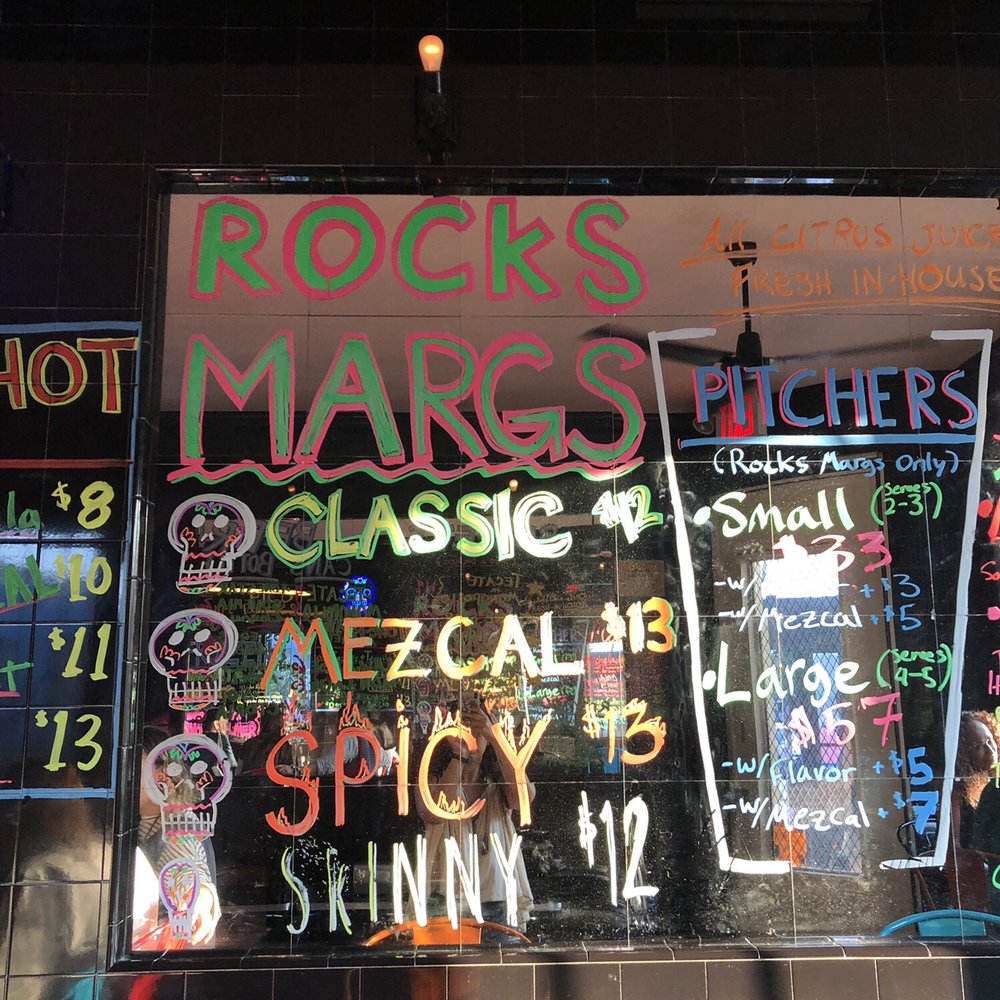 HOT
$8
$10
$11
$13
ROCKS
MARGS
CLASSIC $12
MEZCAL $13
SPICY $13
SKINNY $12
All CITRUS JUICE
FRESH IN-HOUSE
PITCHERS
(Rocks Margs Only)
•Small (Serves 2-3)
$33
-w/ + $3
-w/Mezcal + $5
•Large (Serves 4-5)
$57
-w/Flavor + $5
-w/Mezcal + $7